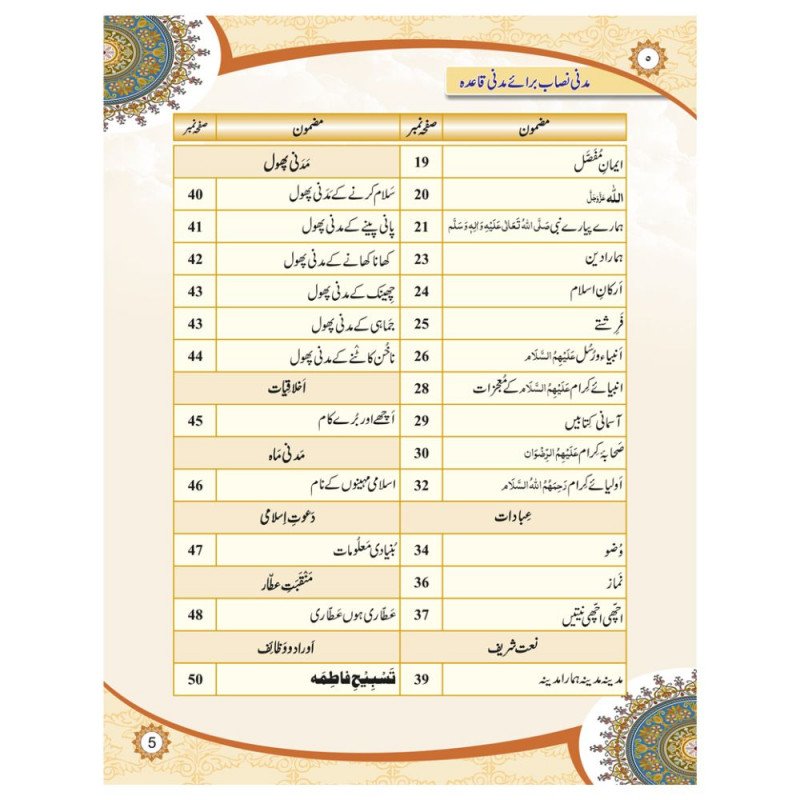 ۵
مدنی نصاب برائے مدنی قاعدہ
مضمون صفحہ نمبر
ایمانِ مُفَصَّل 19
اللہ عَزَّوَجَلَّ 20
ہمارے پیارے نبی صَلَّی اللہُ تَعَالٰی عَلَیْہِ وَاٰلِہٖ وَسَلَّم 21
ہمارا دین 23
اَرکانِ اسلام 24
فَرِشتے 25
اَنبیاء و رُسُل عَلَیْہِمُ السَّلَام 26
انبیائے کِرام عَلَیْہِمُ السَّلَام کے مُعْجِزات 28
آسمانی کِتابیں 29
صَحابۂ کِرام عَلَیْہِمُ الرِّضْوَان 30
اَولیائے کِرام رَحِمَہُمُ اللہُ السَّلَام 32
عِبادات
وُضو 34
نَماز 36
اچّھی اچّھی نیتیں 37
نعت شریف
مدینہ مدینہ ہمارا مدینہ 39
مضمون صفحہ نمبر
مَدَنی پھول
سَلام کرنے کے مَدَنی پھول 40
پانی پینے کے مدنی پھول 41
کھانا کھانے کے مدنی پھول 42
چِھینک کے مدنی پھول 43
جَماہی کے مدنی پھول 43
ناخُن کاٹنے کے مدنی پھول 44
اَخلاقِیات
اَچھے اور بُرے کام 45
مَدَنی مَاہ
اسلامی مہینوں کے نام 46
دَعوتِ اِسلامی
بُنیادی مَعلُومات 47
مَنْقَبَتِ عطّار
عَطّاری ہوں عَطّاری 48
اَوراد و وَظائِف
تَسْبِیْحِ فَاطِمَہ 50
5